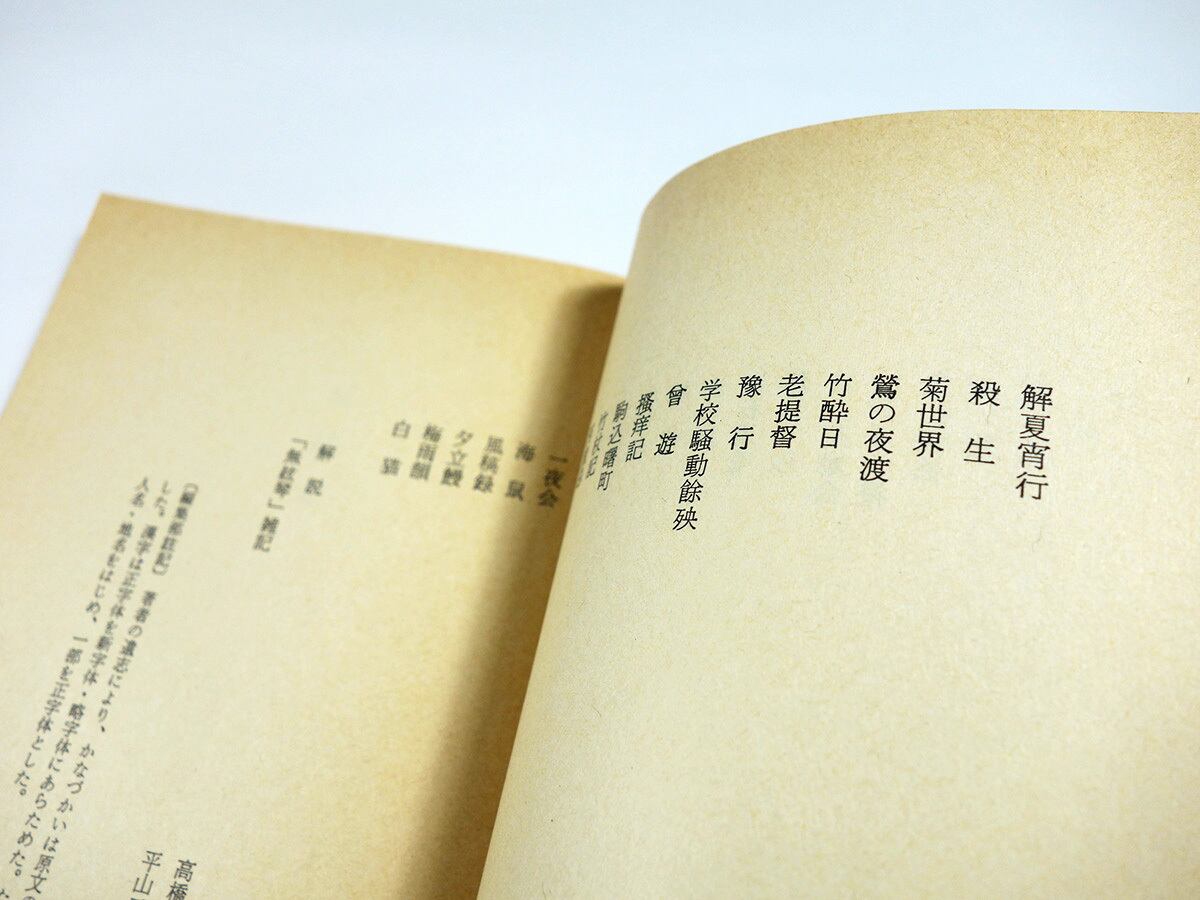 解夏宵行
殺生
鶯の夜渡
菊世界
竹酔日
老提督
豫行
学校騒動餘殃
曾遊
搔痒記
駒込曙町
竹杖記
一夜会
海鼠
風稿録
夕立鰻
梅雨韻
白猫
解説
「無絃琴」雑記
高橋
平山
〔編集部註記〕 著者の遺志により、かなづかいは原文の
した。漢字は正字体を新字体・略字体にあらためた。
人名・地名をはじめ、一部を正字体とした。